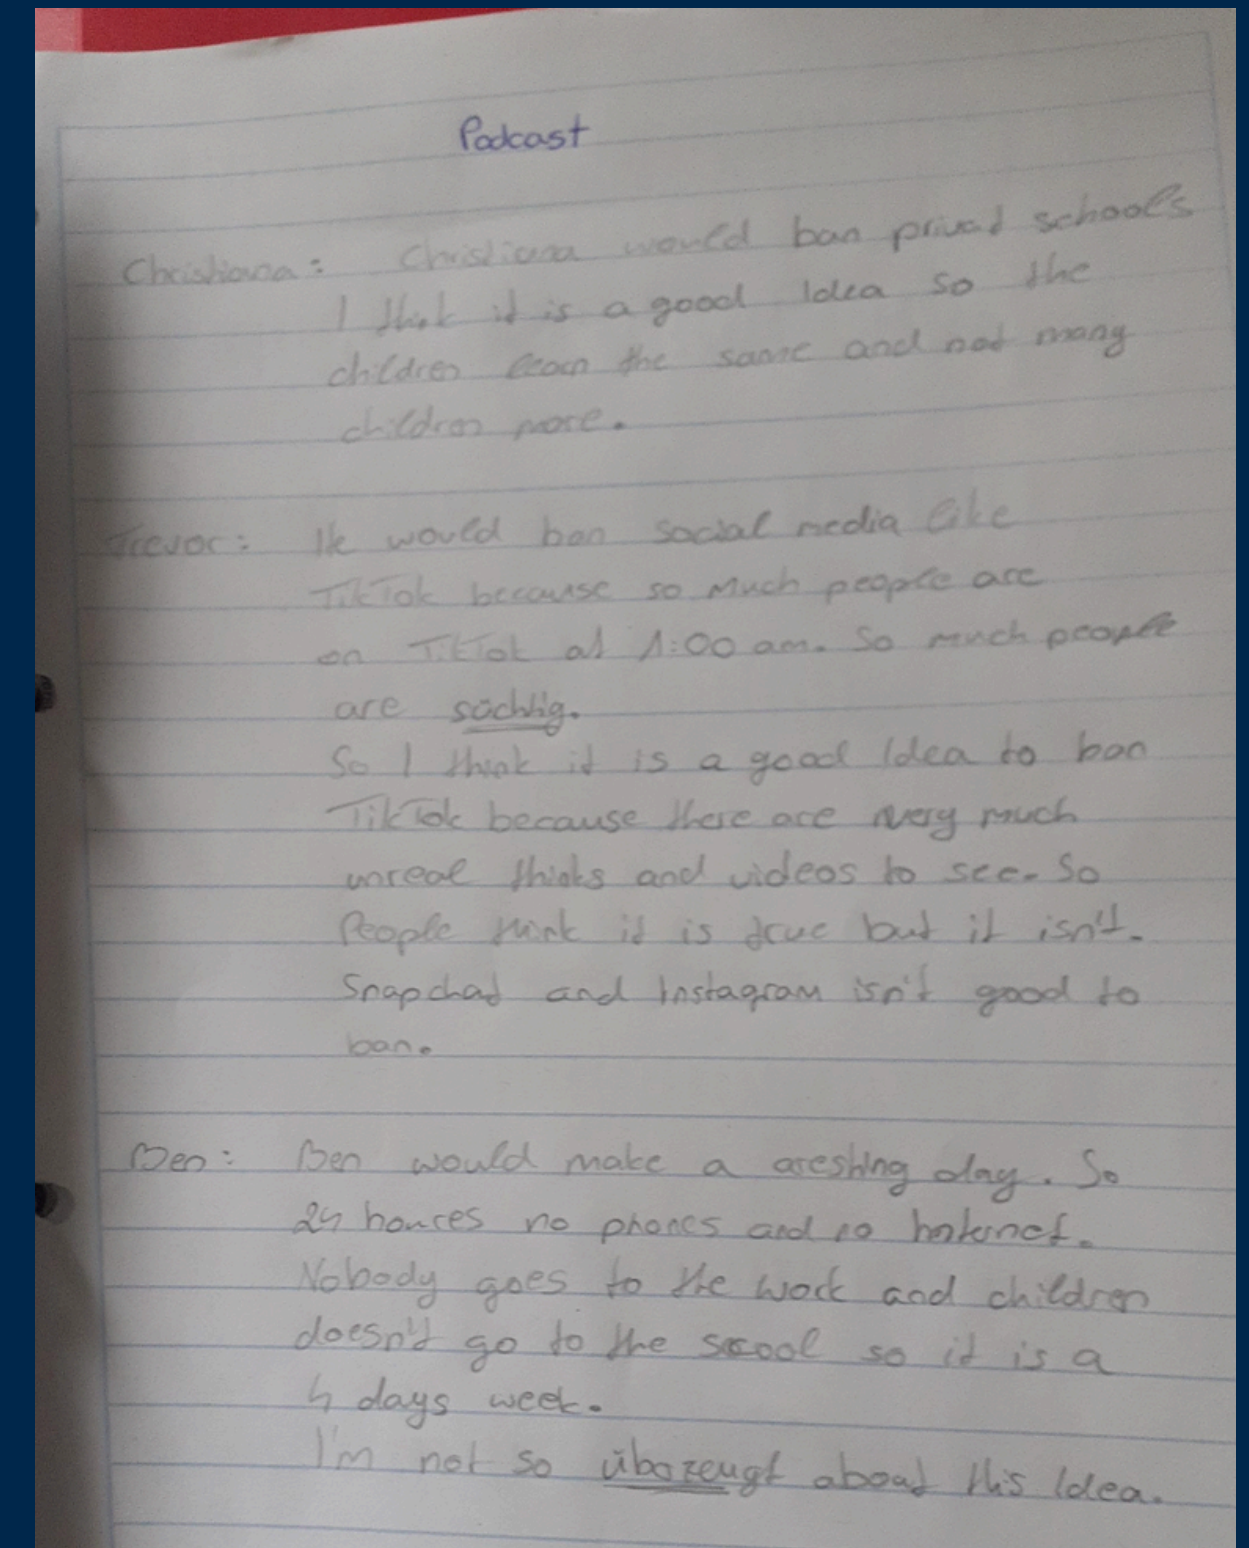 Podcast
Christiana: Christiana would ban privat schools
I think it is a good Idea so the
children learn the same and not many
children more.
Trevor: He would ban social media like
TikTok because so much people are
on TikTok at 1:00 am. So much people
are süchtig.
So I think it is a good Idea to ban
TikTok because there are very much
unreal thinks and videos to see. So
People think it is true but it isn't.
Snapchat and Instagram isn't good to
ban.
Ben: Ben would make a day. So
24 houres no phones and no Internet.
Nobody goes to the work and children
doesn't go to the scool so it is a
4 days week.
I'm not so überzeugt about this Idea.